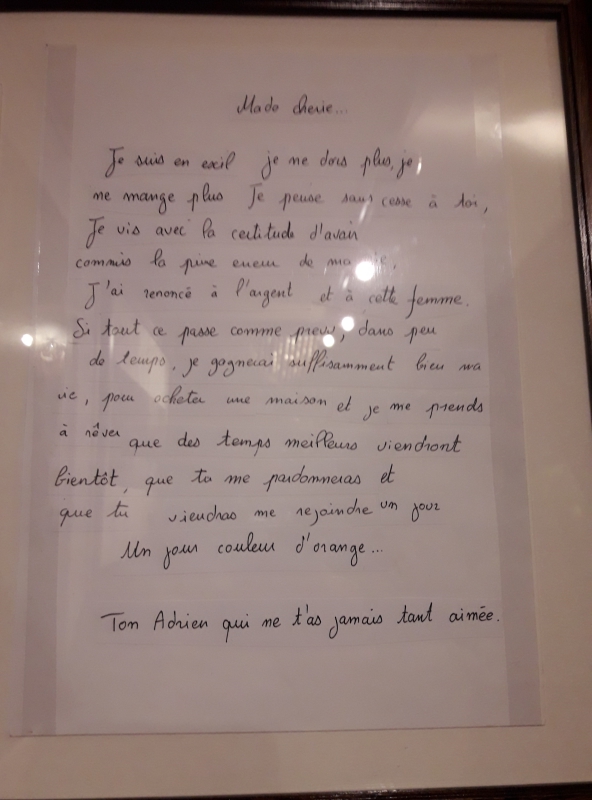 Mado cherie...
Je suis en exil je ne dors plus, je
ne mange plus Je pense sans cesse à toi,
Je vis avec la certitude d'avoir
commis la pire erreur de ma vie.
J'ai renoncé à l'argent et à cette femme.
Si tout ce passe comme prevu, dans peu
de temps, je gagnerai suffisamment bien ma
vie, pour acheter une maison et je me prends
à rêver que des temps meilleurs viendront
bientôt, que tu me pardonneras et
que tu viendras me rejoindre un jour
Un jour couleur d'orange...
Ton Adrien qui ne t'as jamais tant aimée.